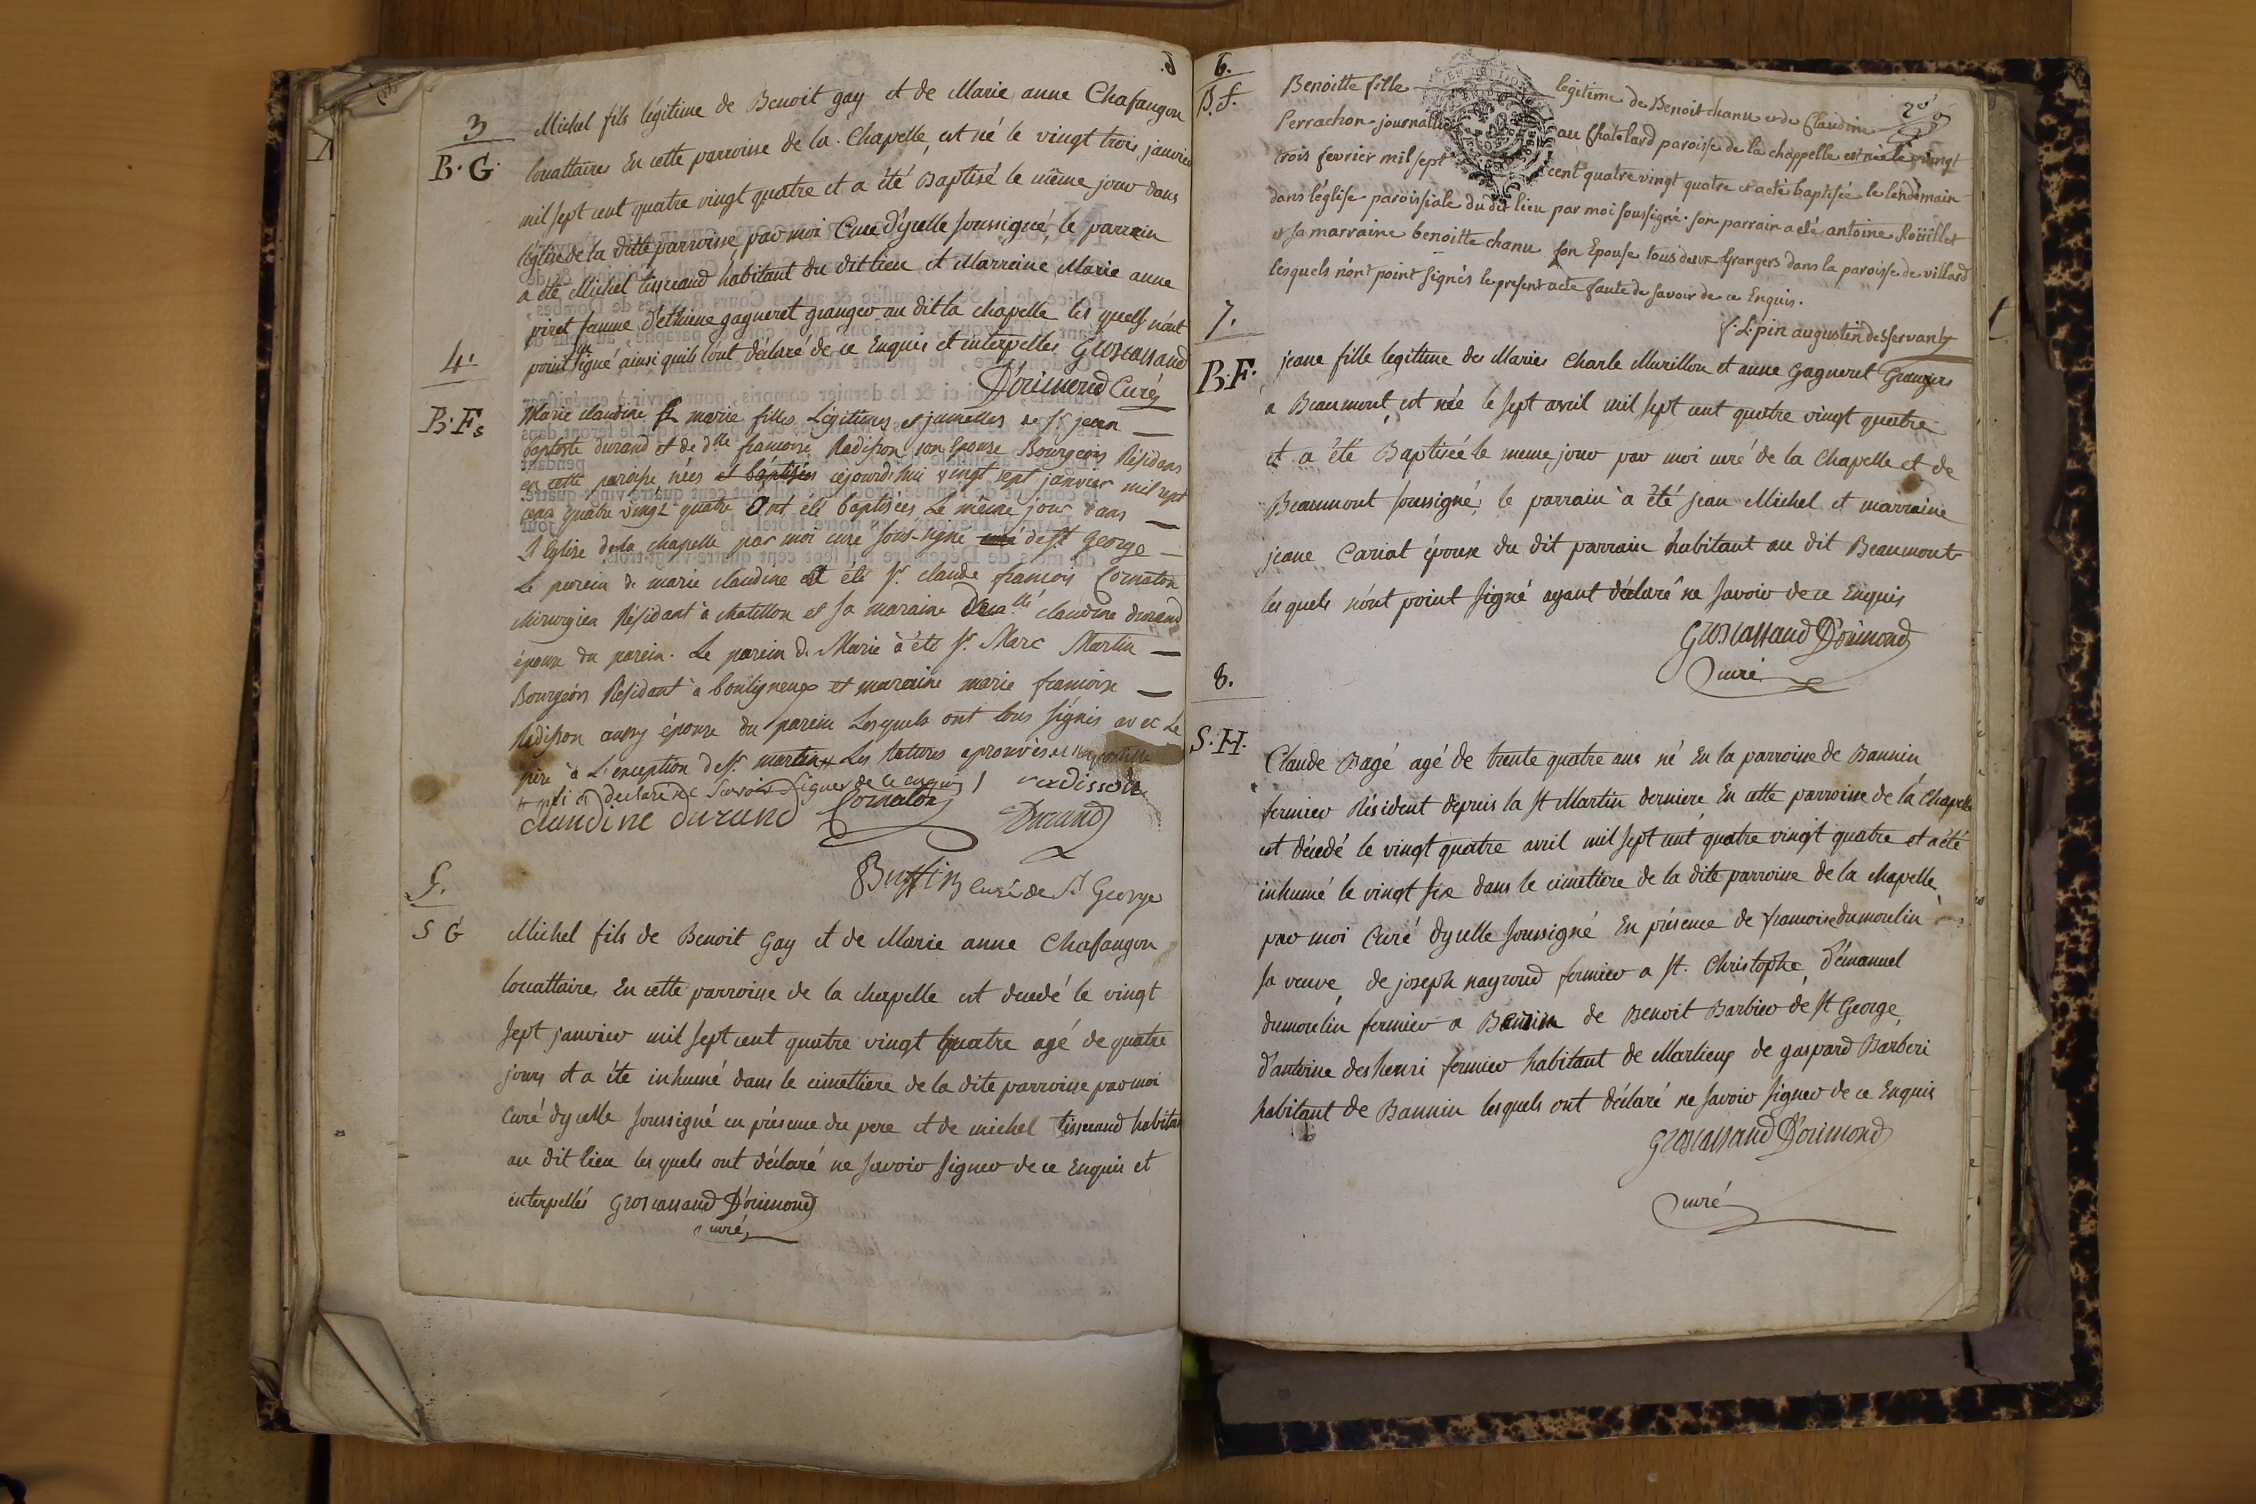 3
B. G.
Michel fils légitime de Benoit gay et de Marie anne Chafangon
louattaires En cette parroisse de la Chapelle, est né le vingt trois janvier
mil sept cent quatre vingt quatre et a été Baptisé le même jour dans
l'église de la ditte parroisse par moi Curé d'ycelle soussigné, le parrein
a été Michel tisseraud habitant du dit lieu et Marreine Marie anne
piret famme d'ethiene gagneret granger au dit la chapelle les quels n'ont
point signé ainsi quils l'ont déclaré de ce Enquis et interpellés Groscassaud
D'orimond Curé
4.
B. Fs
Marie claudine et marie filles Légittimes et jumelles de sr jean
baptiste durand et de dlle francoise Radisson son épouse Bourgeois Résidans
en cette paroisse nées et baptisées cejourd'hui vingt sept janvier mil sept
cens quatre vingt quatre Ont été baptisées Le même jour dans
L'église de la chapelle par moi curé sous-signé de st George
Le parein de marie claudine a été sr claude francois Cornaton
chirurgien Résidant à chatillon et sa maraine claudine durand
épouse du parein. Le parein de Marie à été sr Marc Martin
Bourgeois Résidant à bouligneux et maraine marie francoise
Radisson aussy épouse du parein Lesquels ont tous signés avec Le
père à L'exception de sr martin Les ratures aprouvés
qui a declaré ne savoir signer de ce enquis radisson
claudine durand Cornaton Durand
Buffin curé de St George
5.
S G
Michel fils de Benoit Gay et de Marie anne Chafangon
louattaire, En cette parroisse de la chapelle est decedé le vingt
sept janvier mil sept cent quatre vingt quatre agé de quatre
jours et a été inhumé dans le cimettiere de la dite parroisse par moi
Curé dycelle soussigné en présence du pere et de michel tisseraud habitant
au dit lieu les quels ont déclaré ne savoir signer de ce Enquis et
interpellés Groscassaud D'orimond
curé
6.
B. f.
Benoitte fille légitime de Benoit chanu et de Claudine
Perrachon journallier au Chatelard paroisse de la chappelle est née le vingt
trois fevrier mil sept cent quatre vingt quatre et a été baptisée le lendemain
dans l'église paroissiale du dit lieu par moi soussigné. son parrain a été antoine Roüillet
et sa marraine benoitte chanu son Epouse tous deux Grangers dans la paroisse de villard
lesquels n'ont point signés le present acte faute de savoir de ce Enquis.
f. L. pin augustin desservant
7.
B. F.
jeane fille legitime des Maries Charle Murillon et anne Gagneret Grangers
a Beaumont, est née le sept avril mil sept cent quatre vingt quatre
et a été Baptisée le meme jour par moi curé de la Chapelle et de
Beaumont soussigné, le parrain a été jean Michel et marraine
jeane Cariat épouse du dit parrain habitant au dit Beaumont
les quels n'ont point signé ayant déclaré ne savoir de ce Enquis
Groscassaud D'orimond
curé
8.
S. H.
Claude Bagé agé de trente quatre ans né En la parroisse de Bannin
fermier Résident depuis la st Martin derniere En cette parroisse de la Chapelle
est décedé le vingt quatre avril mil sept cent quatre vingt quatre et a été
inhumé le vingt six dans le cimetiere de la dite parroisse de la chapelle
par moi Curé dycelle soussigné En présence de francoise dumoulin
sa veuve, de joseph nayroud fermier a st. Christophe, d'émanuel
dumoulin fermier a Bannin de Benoit Barbier de st George,
d'antoine deshenri fermier habitant de Marlieux de gaspard Barberi
habitant de Bannin lesquels ont déclaré ne savoir signer de ce Enquis
Groscassaud D'orimond
curé